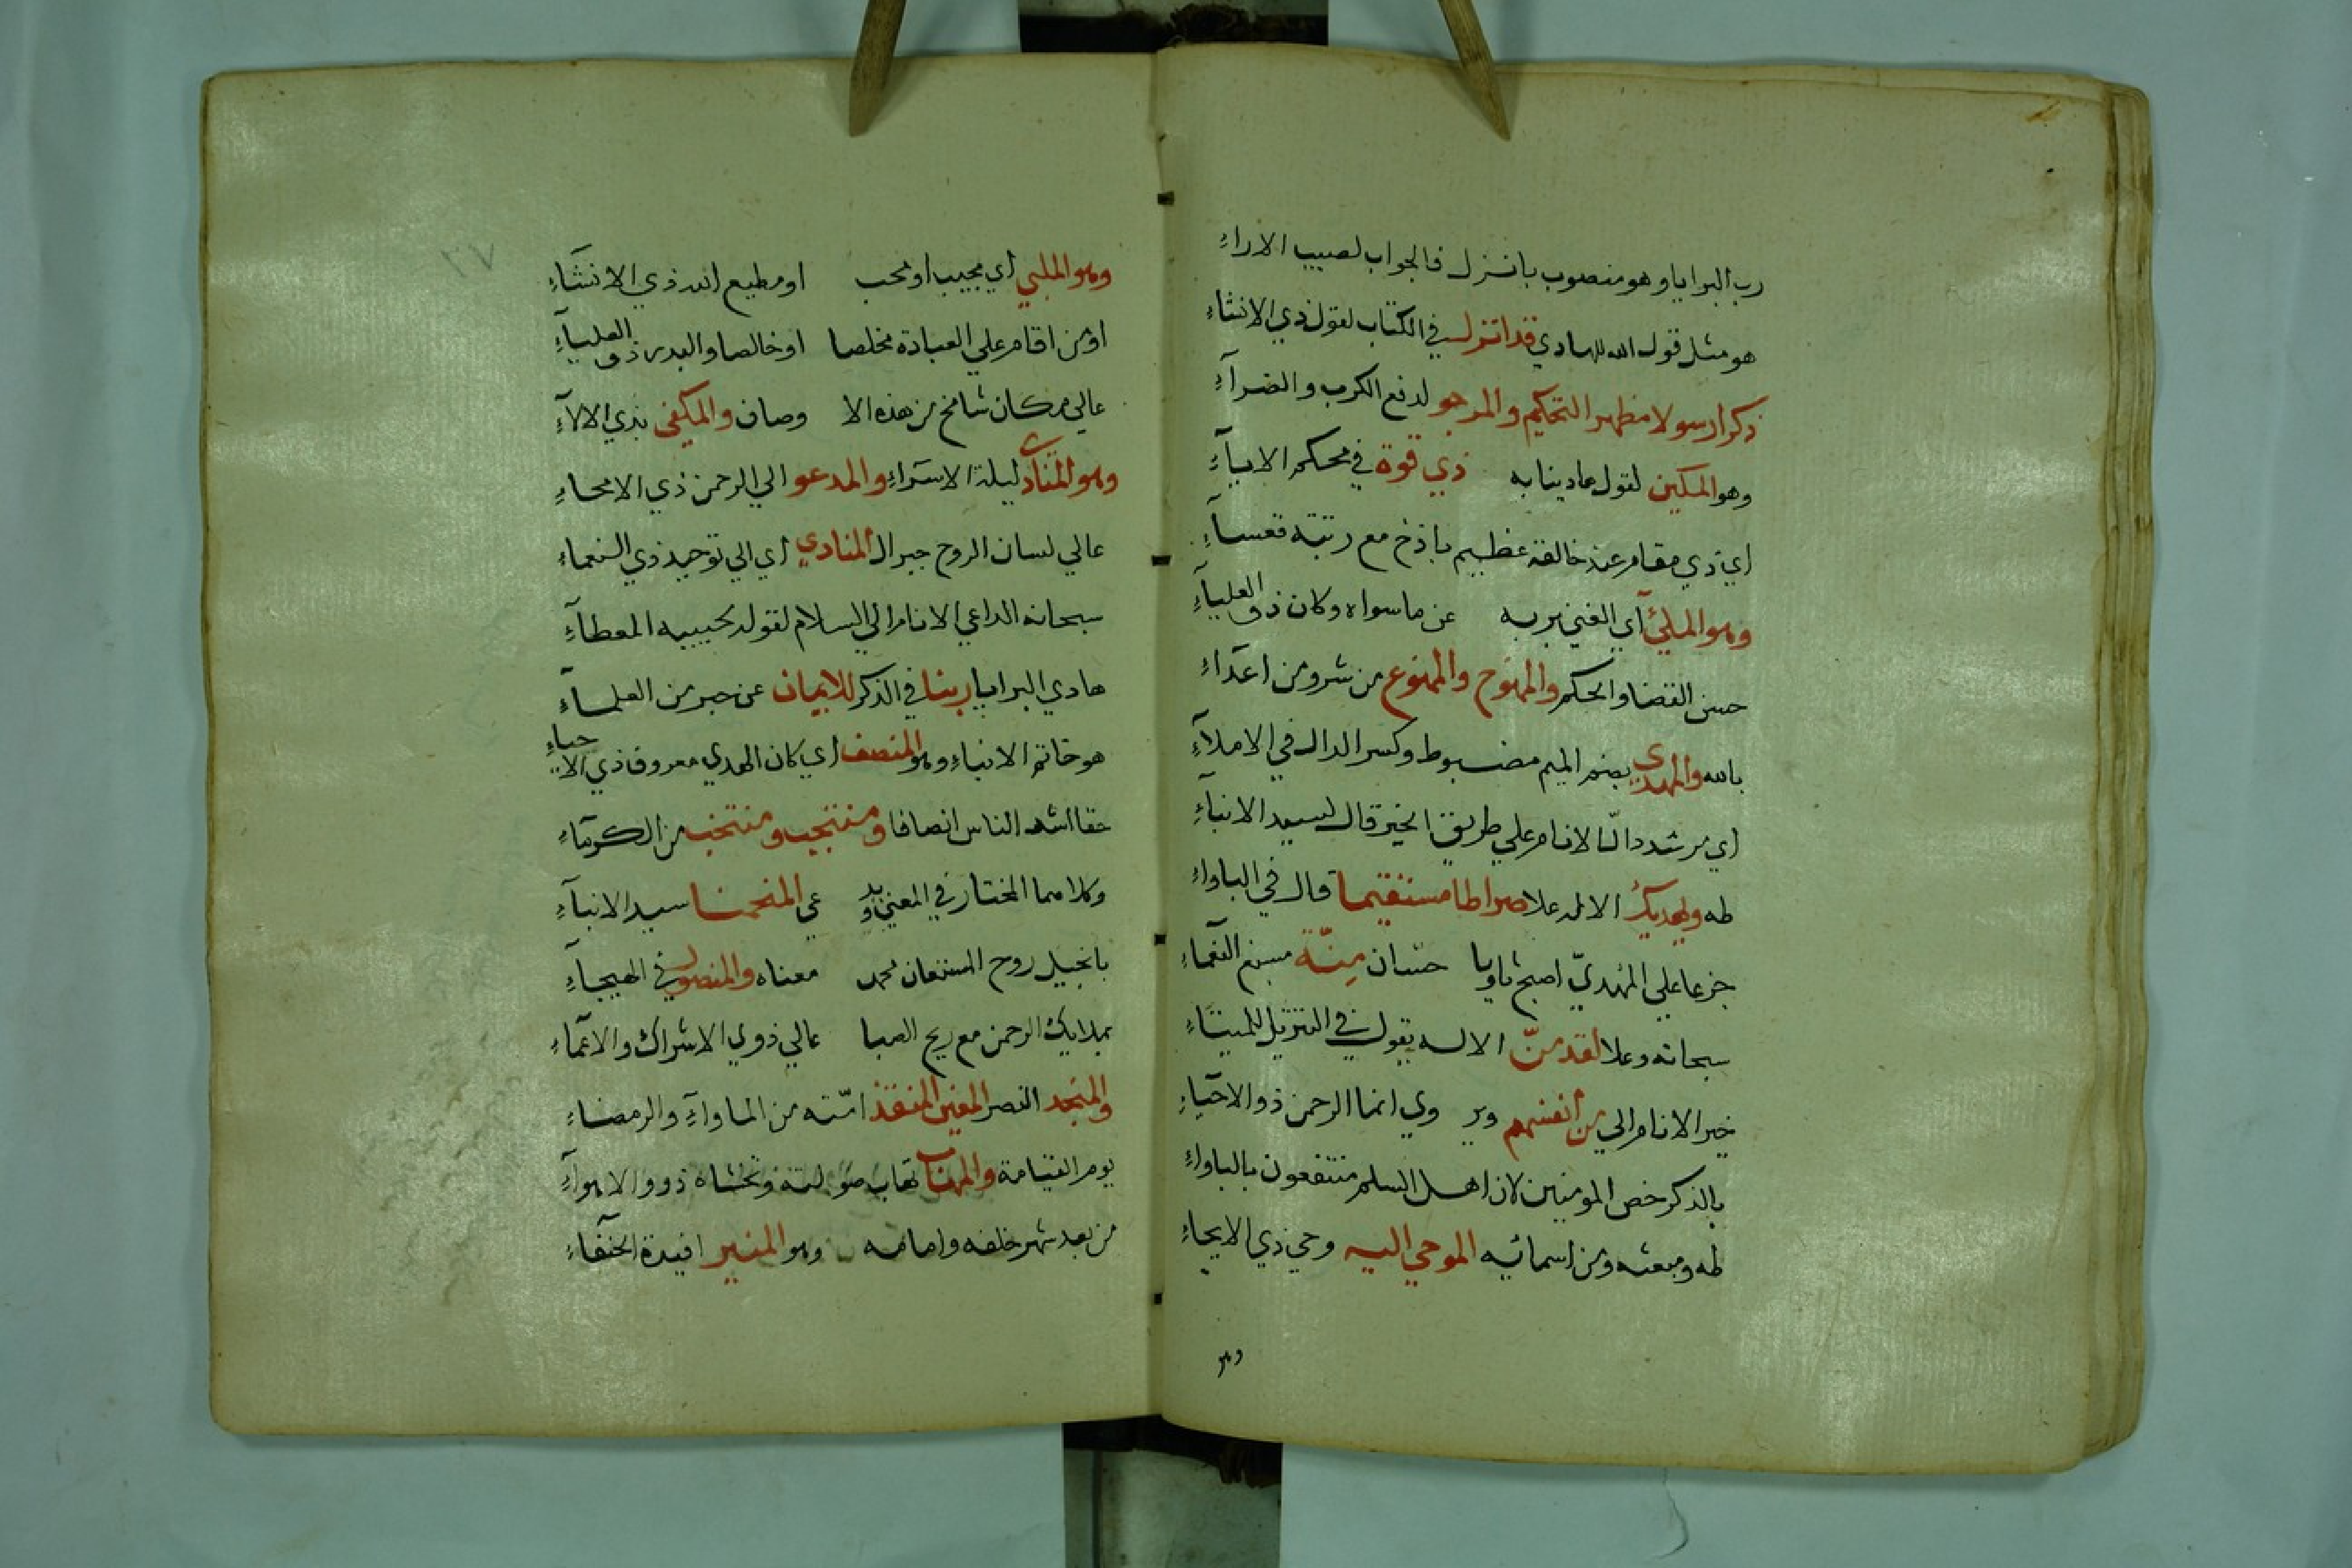 رب البرايا وهو منصوب بانزل فالجواب لصبيب الاراءِ
هو مثل قول الله للهادي قد انزل في الكتاب لقول ذي الانشاءِ
ذكرا رسولا مظهر التحكيم والمرجو لدفع الكرب والضرآءِ
وهو المكين لقول هادينا به ذي قوة في محكم الايآءِ
اي ذي مقام عند خالقه عظيم باذخ مع رتبة قعسآءِ
وهو الملئ اي الغني بربه عن ما سواه وكان ذو العليآءِ
حسن القضا والحكم والمنوح والممنوع من شر ومن اعدآءِ
بالله والمهدى بضم الميم مضبوط وكسر الدال في الاملآءِ
اي مرشد دالا الانام علي طريق الخير قال لسيد الانبآءِ
طه ويهديك الاله علا صراطا مستقيما قال في الباواءِ
جزعا علي المهديّ اصبح ثاويا حسان منّة مسبغ النعماءِ
سبحانه وعلا لقد منّ الاله يقول في التنزيل للميثاءِ
خير الانام الي من أنفسهم وير وي انما الرحمن ذو الاحيآءِ
بالذكر خص المومنين لان اهل السلم منتفعون بالباواءِ
طه ومبعثه ومن اسمائيه الموحي اليه وحي ذي الايحاءِ
وهو
٣٧
وهو الملبي اي مجيب او محب او مطيع الله ذي الانشآءِ
او من اقام علي العبادة مخلصا او خالصا والبدر ذو العليآءِ
عالي مكان شامخ من هذه الا وصاف والمكفي بذي الالآءِ
وهو المنادى ليلة الاسرآءِ والمدعو الي الرحمن ذي الامحاءِ
عالي لسان الروح جبرال المنادي اي الي توحيد ذي النعماءِ
سبحانه الداعي الانام الي السلام لقوله لحبيبه المعطآءِ
هادي البرايا ربنا في الذكر للايمان عن حبر من العلمآءِ
هو خاتم الانباء وهو المنصف اي كان الهدي معروف ذي الاحياءِ
حقا اشد الناس انصافا ومنتجب ومنتخب من الكرمآءِ
وكلاهما المختار في المعني ويد عي المنحمنا سيد الانبآءِ
بانجيل روح المستعان محمد معناه والمنصور في الهيجآءِ
بملايك الرحمن مع ريح الصبا عالي ذوي الاشراك والاعمآءِ
والمنجد النصر المعين المنقذ امّته من الماوآءِ والرمضاءِ
يوم القيامة والمهاب تهاب صولته وتخشاه ذوو الاهوآءِ
من بعد شهر خلفه وامامه وهو المنير افيدة الحنفآءِ